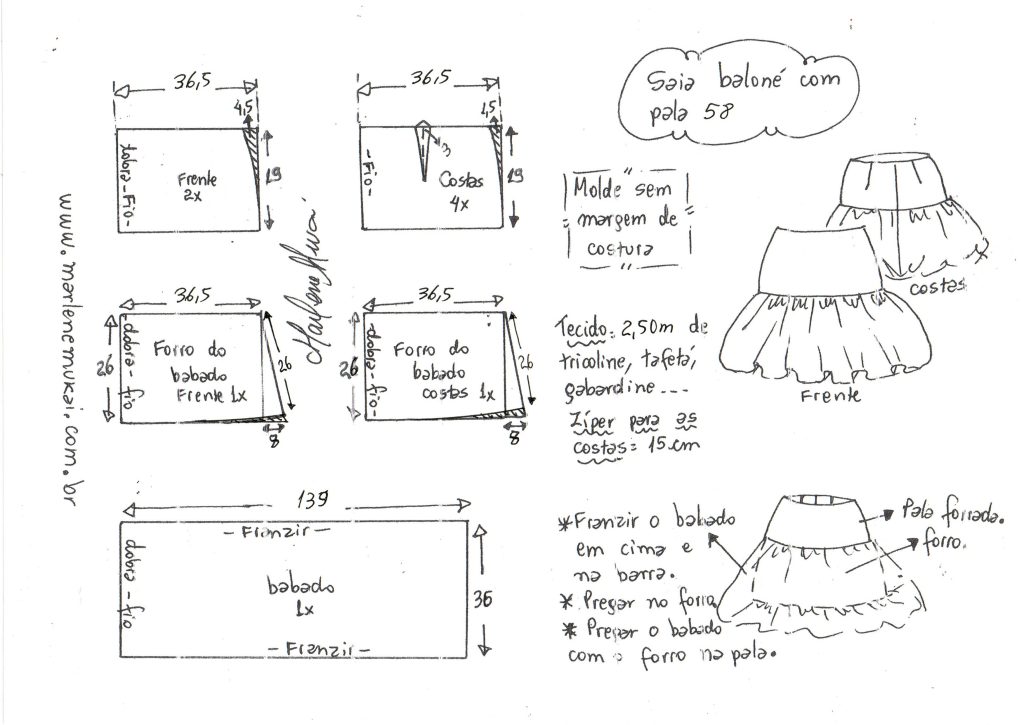 Saia baloné com
pala 58
36,5
4,5
19
dobra-Fio-
Frente
2x
36,5
1,5
3
19
-Fio-
Costas
4x
"
Molde sem
margem de
costura
"
costas
Frente
www.marlenemukai.com.br
Marlene Mukai
36,5
26
26
-dobra-fio
Forro do
babado
Frente 1x
8
36,5
26
26
dobra-fio-
Forro do
babado
costas 1x
8
Tecido: 2,50m de
tricoline, tafetá,
gabardine ---
Zíper para as
costas = 15 cm
139
- Franzir -
dobra-fio
babado
1x
36
- Franzir -
*Franzir o babado
em cima e
na barra.
* Pregar no forro
* Pregar o babado
com o forro na pala.
Pala forrada.
forro.